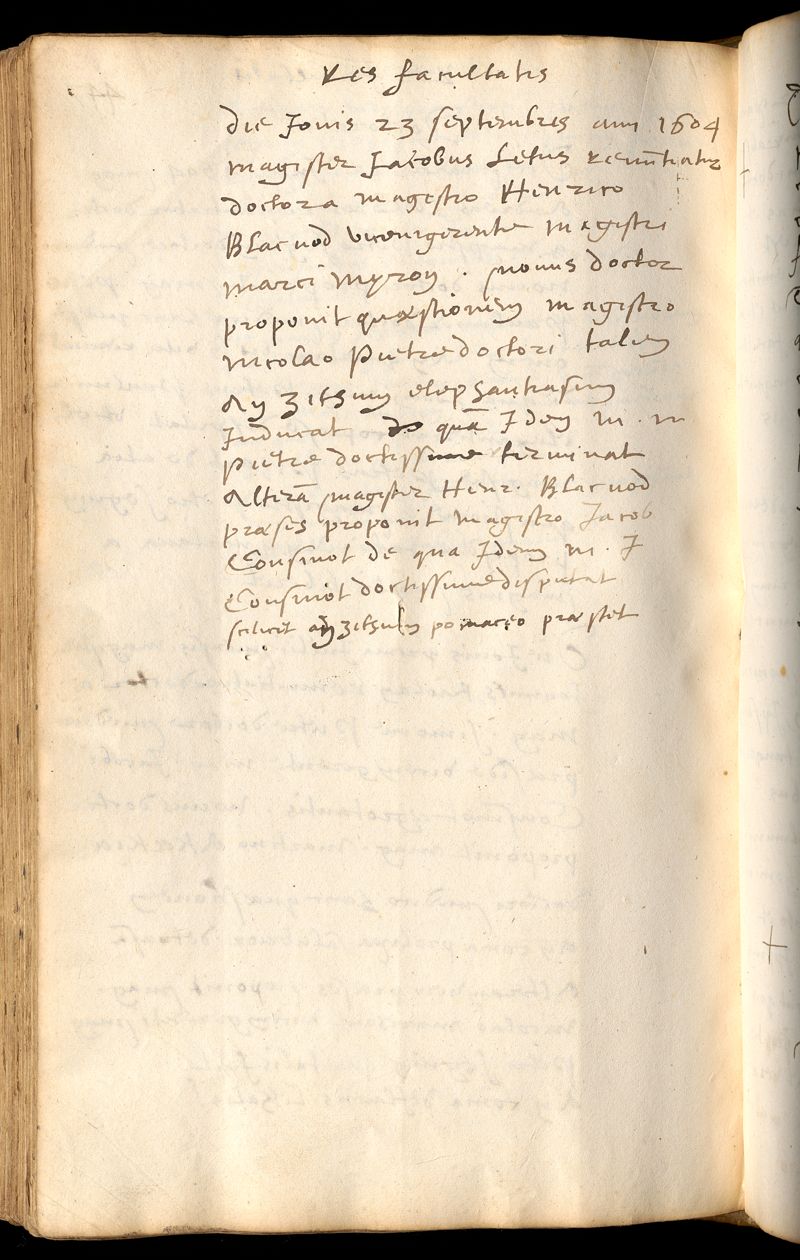 Res facultatis
die Jovis 23 septembris anni 1604
magister Jacobus Letus renuntiatur
doctor a magistro Henrico
Blacuod vicemgerente magistri
marci myron . novus doctor
proponit quæstionem magistro
nicolao Pietre doctori talem
An zithum elephantiasim
Inducat de quā Idem m . n
Pietre doctissime terminat
Alterā magister Henr . Blacuod
præses proponit magistro Jacob
Cousinot de qua Idem m . J
Cousinot doctissime disputat
scilicet an zithum pomaceo præstet